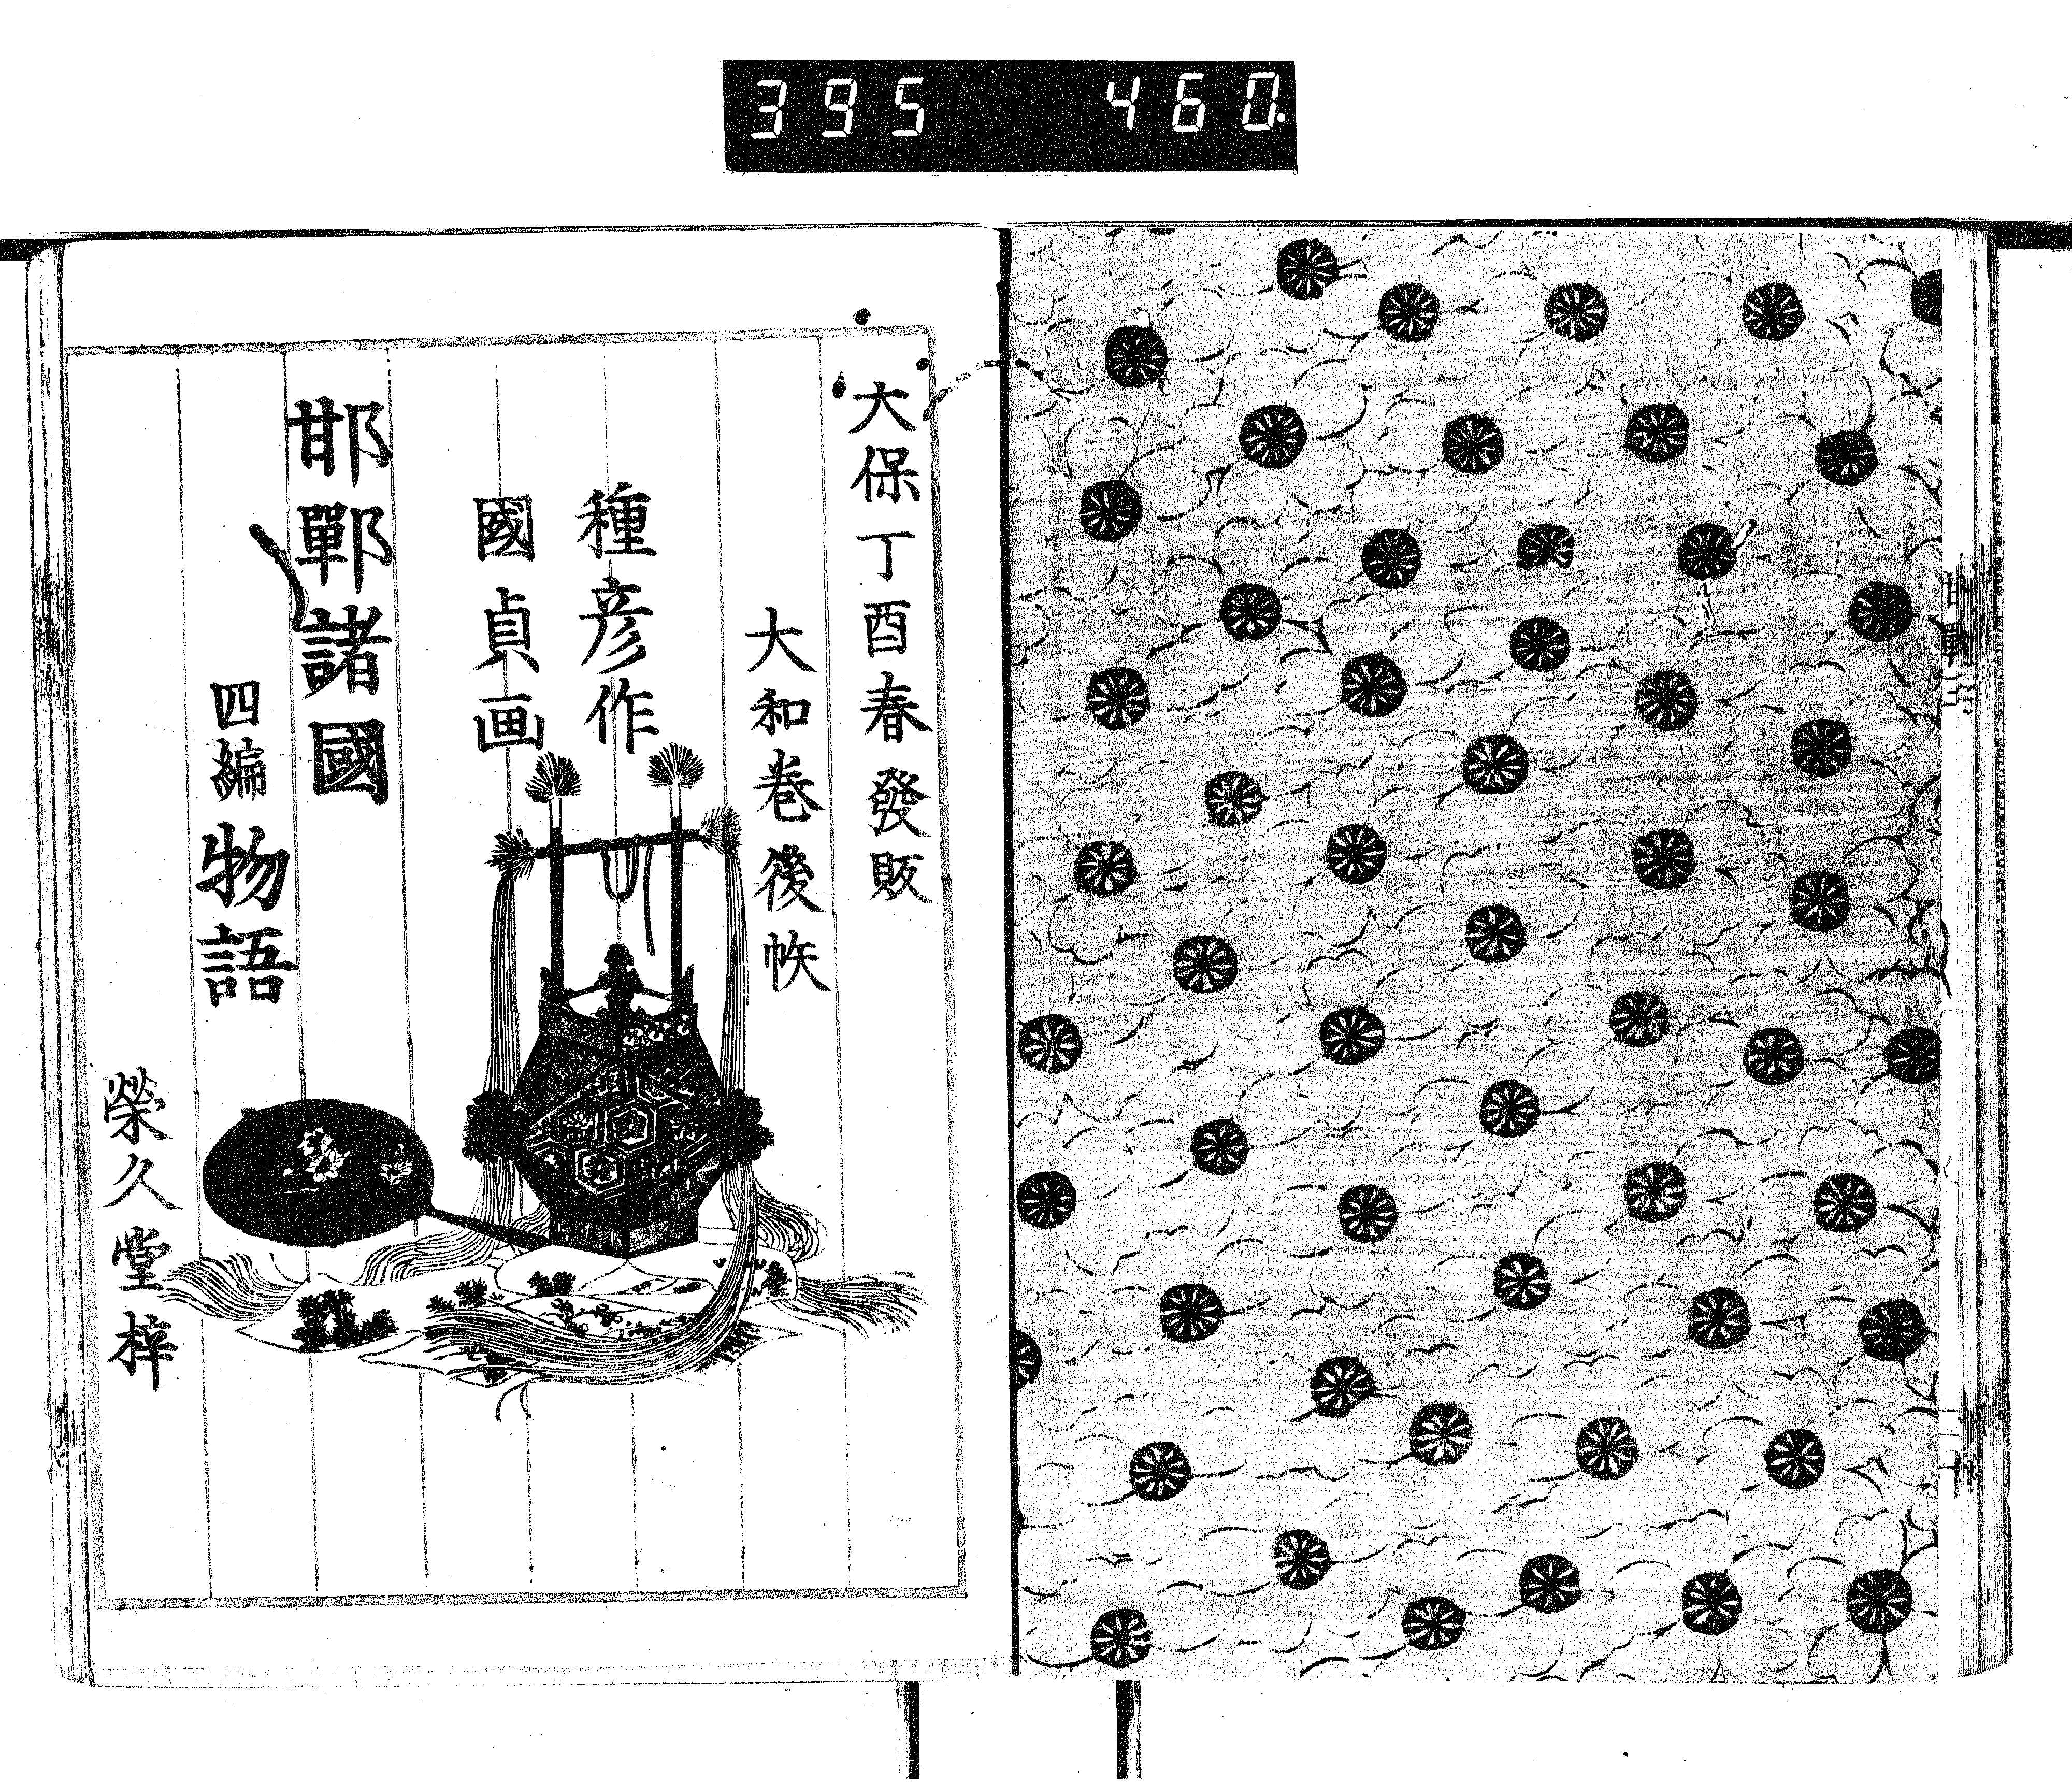 395 460.
大保丁酉春發販
大和巻後帙
種彦作
國貞画
邯鄲諸國
物語
四編
榮久堂梓